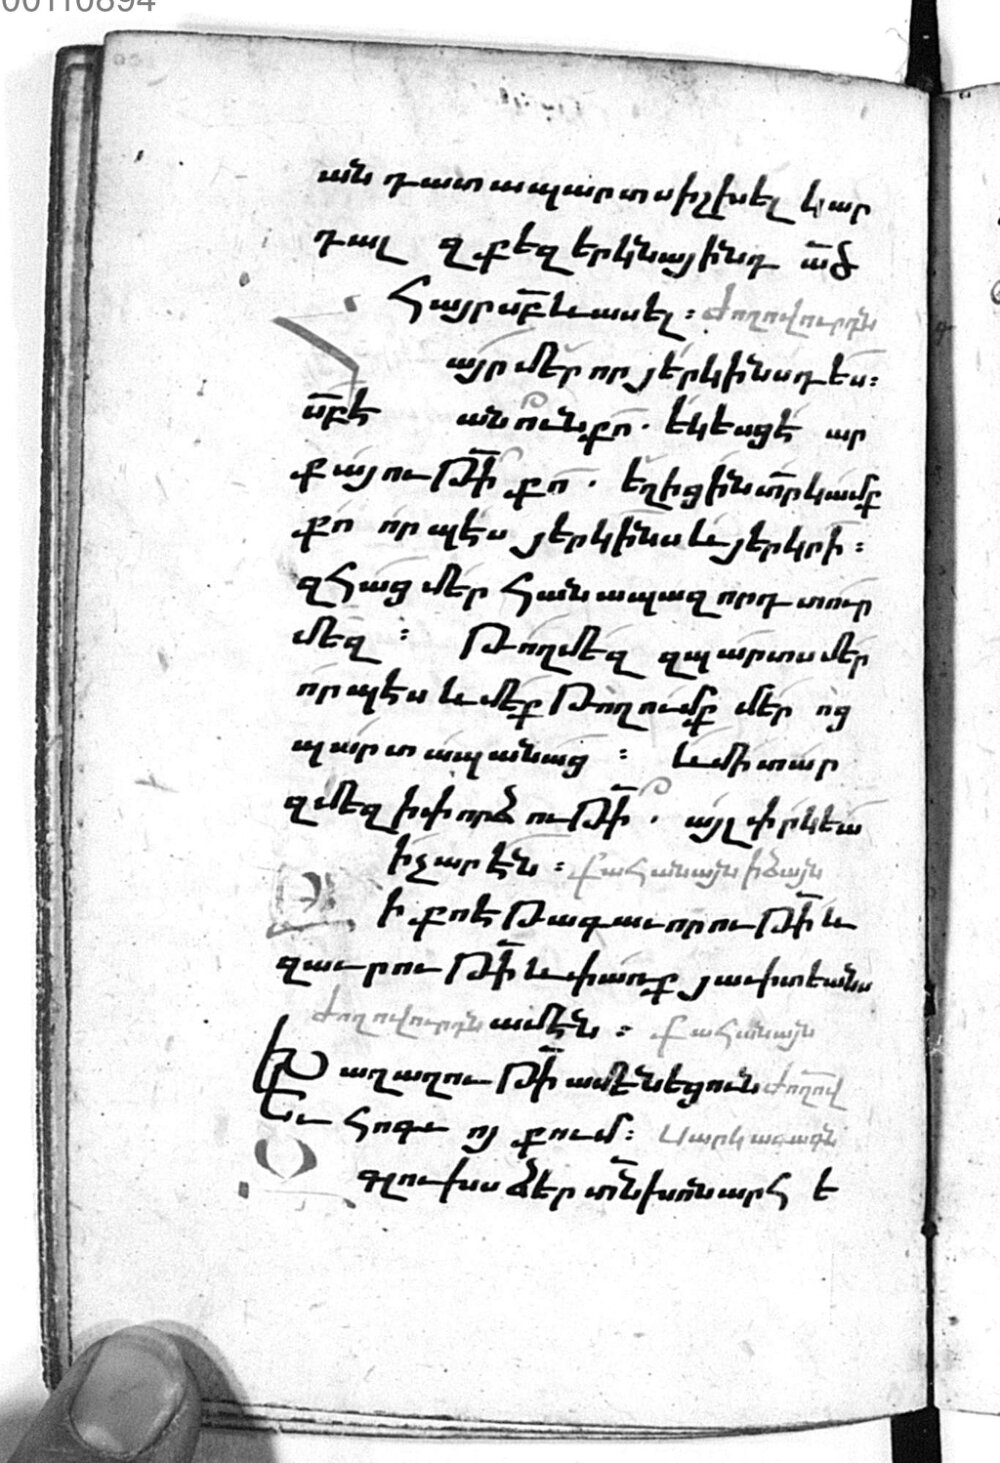 00110894
ան դատապարտ մի չիսել կար
դալ զքեզ երկնային դ ած
Հայր սբ և ասել։ ժողովուրդն
այր մեր որ յերկինսդ ես։
սբ է անուն քո. եկեսցէ ար
քայութի քո. եղիցին տր կամք
քո որպէս յերկինս և յերկրի։
զհաց մեր հանապազորդ տուր
մեզ ։ Թող մեզ զպարտս մեր
որպէս և մեք թողումք մերոց
պարտապանաց ։ և մի տար
զմեզ ի փորձութի. այլ փրկեա
ի չարէն ։ քահանայն ի ձայն
ի քո է թագաւորութի և
զաւրութի և փառք յաւիտեանս
ժողովուրդն ամէն ։ քահանայն
Խաղաղութի ամէնեցուն ժողով
Եւ հոգւոյ քում։ Սարկաւագն
գլուխս ձեր տն խոնարհե